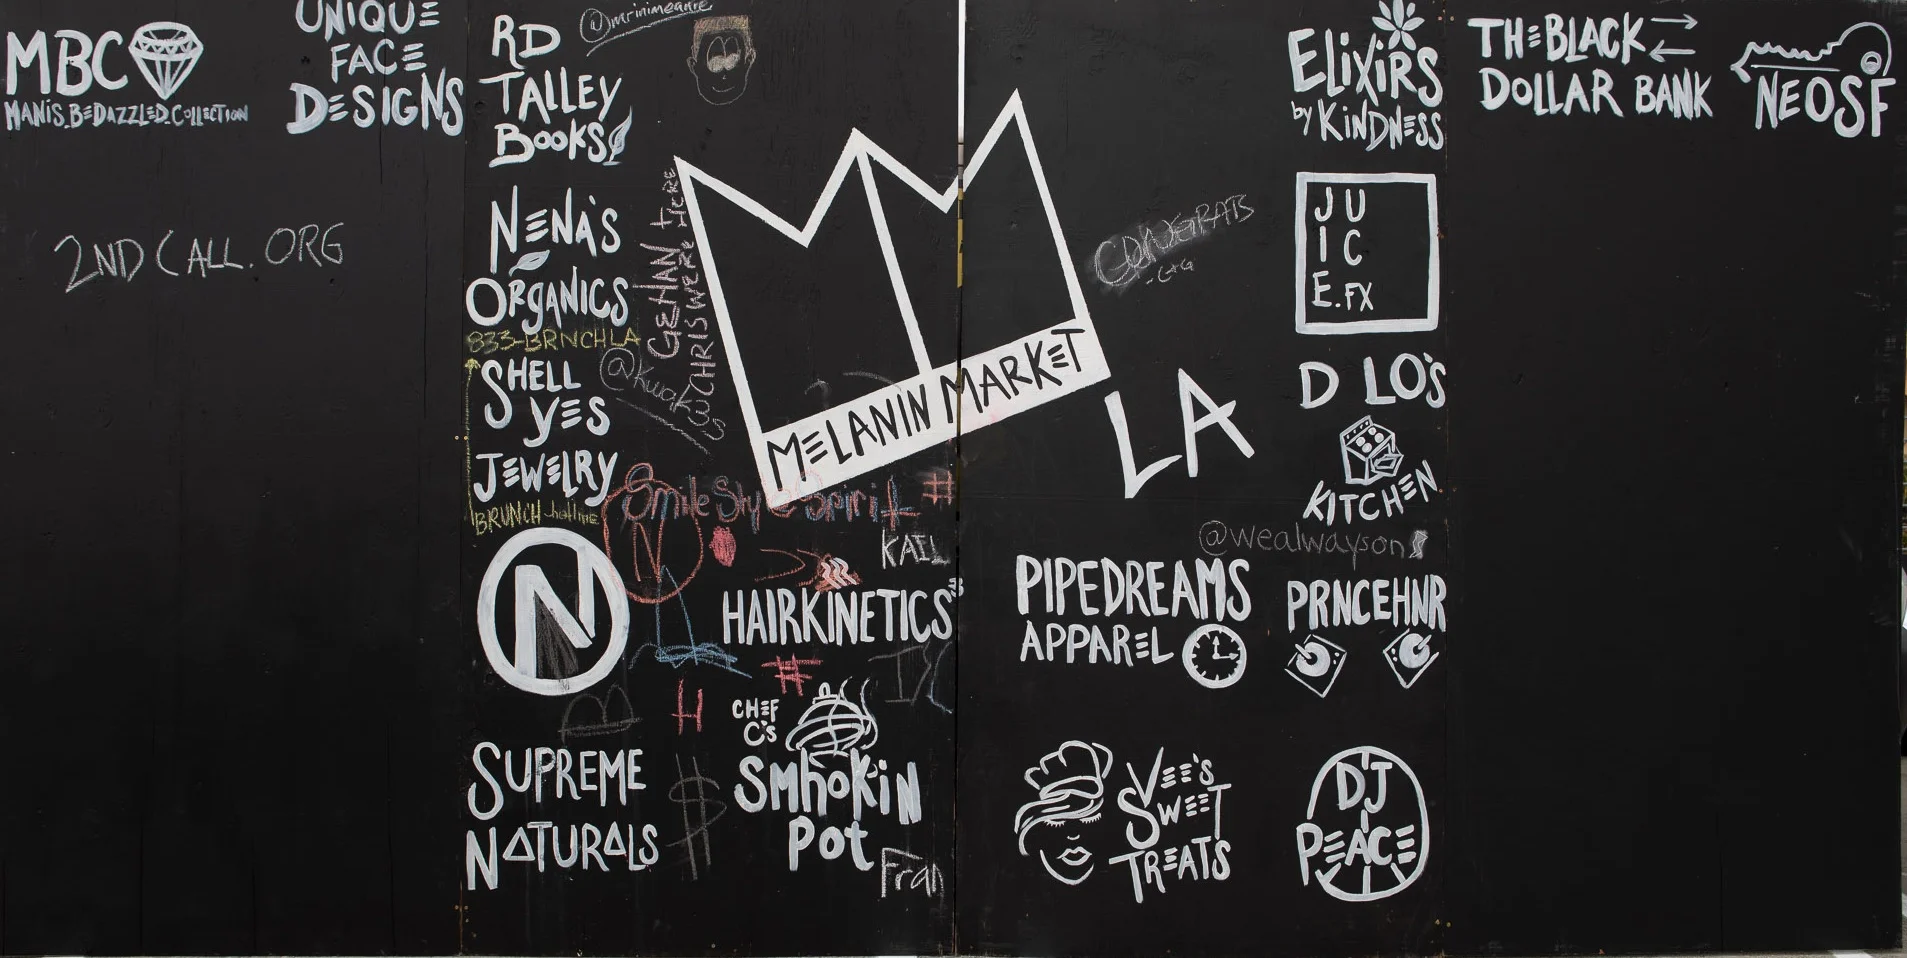 MBC
MANIS.BEDAZZLED.COLLECTION
UNIQUE
FACE
DESIGNS
2NDCALL.ORG
RD
TALLEY
BOOKS
@mrinimeanre
NENA'S
ORGANICS
833-BRNCHLA
SHELL
YES
JEWELRY
BRUNCH hotline
GEHAN
CHRIS WERE HERE
N
SUPREME
NATURALS
MELANIN MARKET
LA
CONGRATS
Smile Style Spirit #
N
KAIL
HAIRKINETICS
#
H
B
$
CHEF
C's
SMhOKiN
Pot
Fran
PIPEDREAMS
APPAREL
VEE'S
SWEET
TREATS
ELIXIRS
by KINDNESS
JU
IC
E.FX
D LO'S
KITCHEN
@wealwayson
PRNCEHNR
DJ
PEACE
THE BLACK
DOLLAR BANK
NEOSF